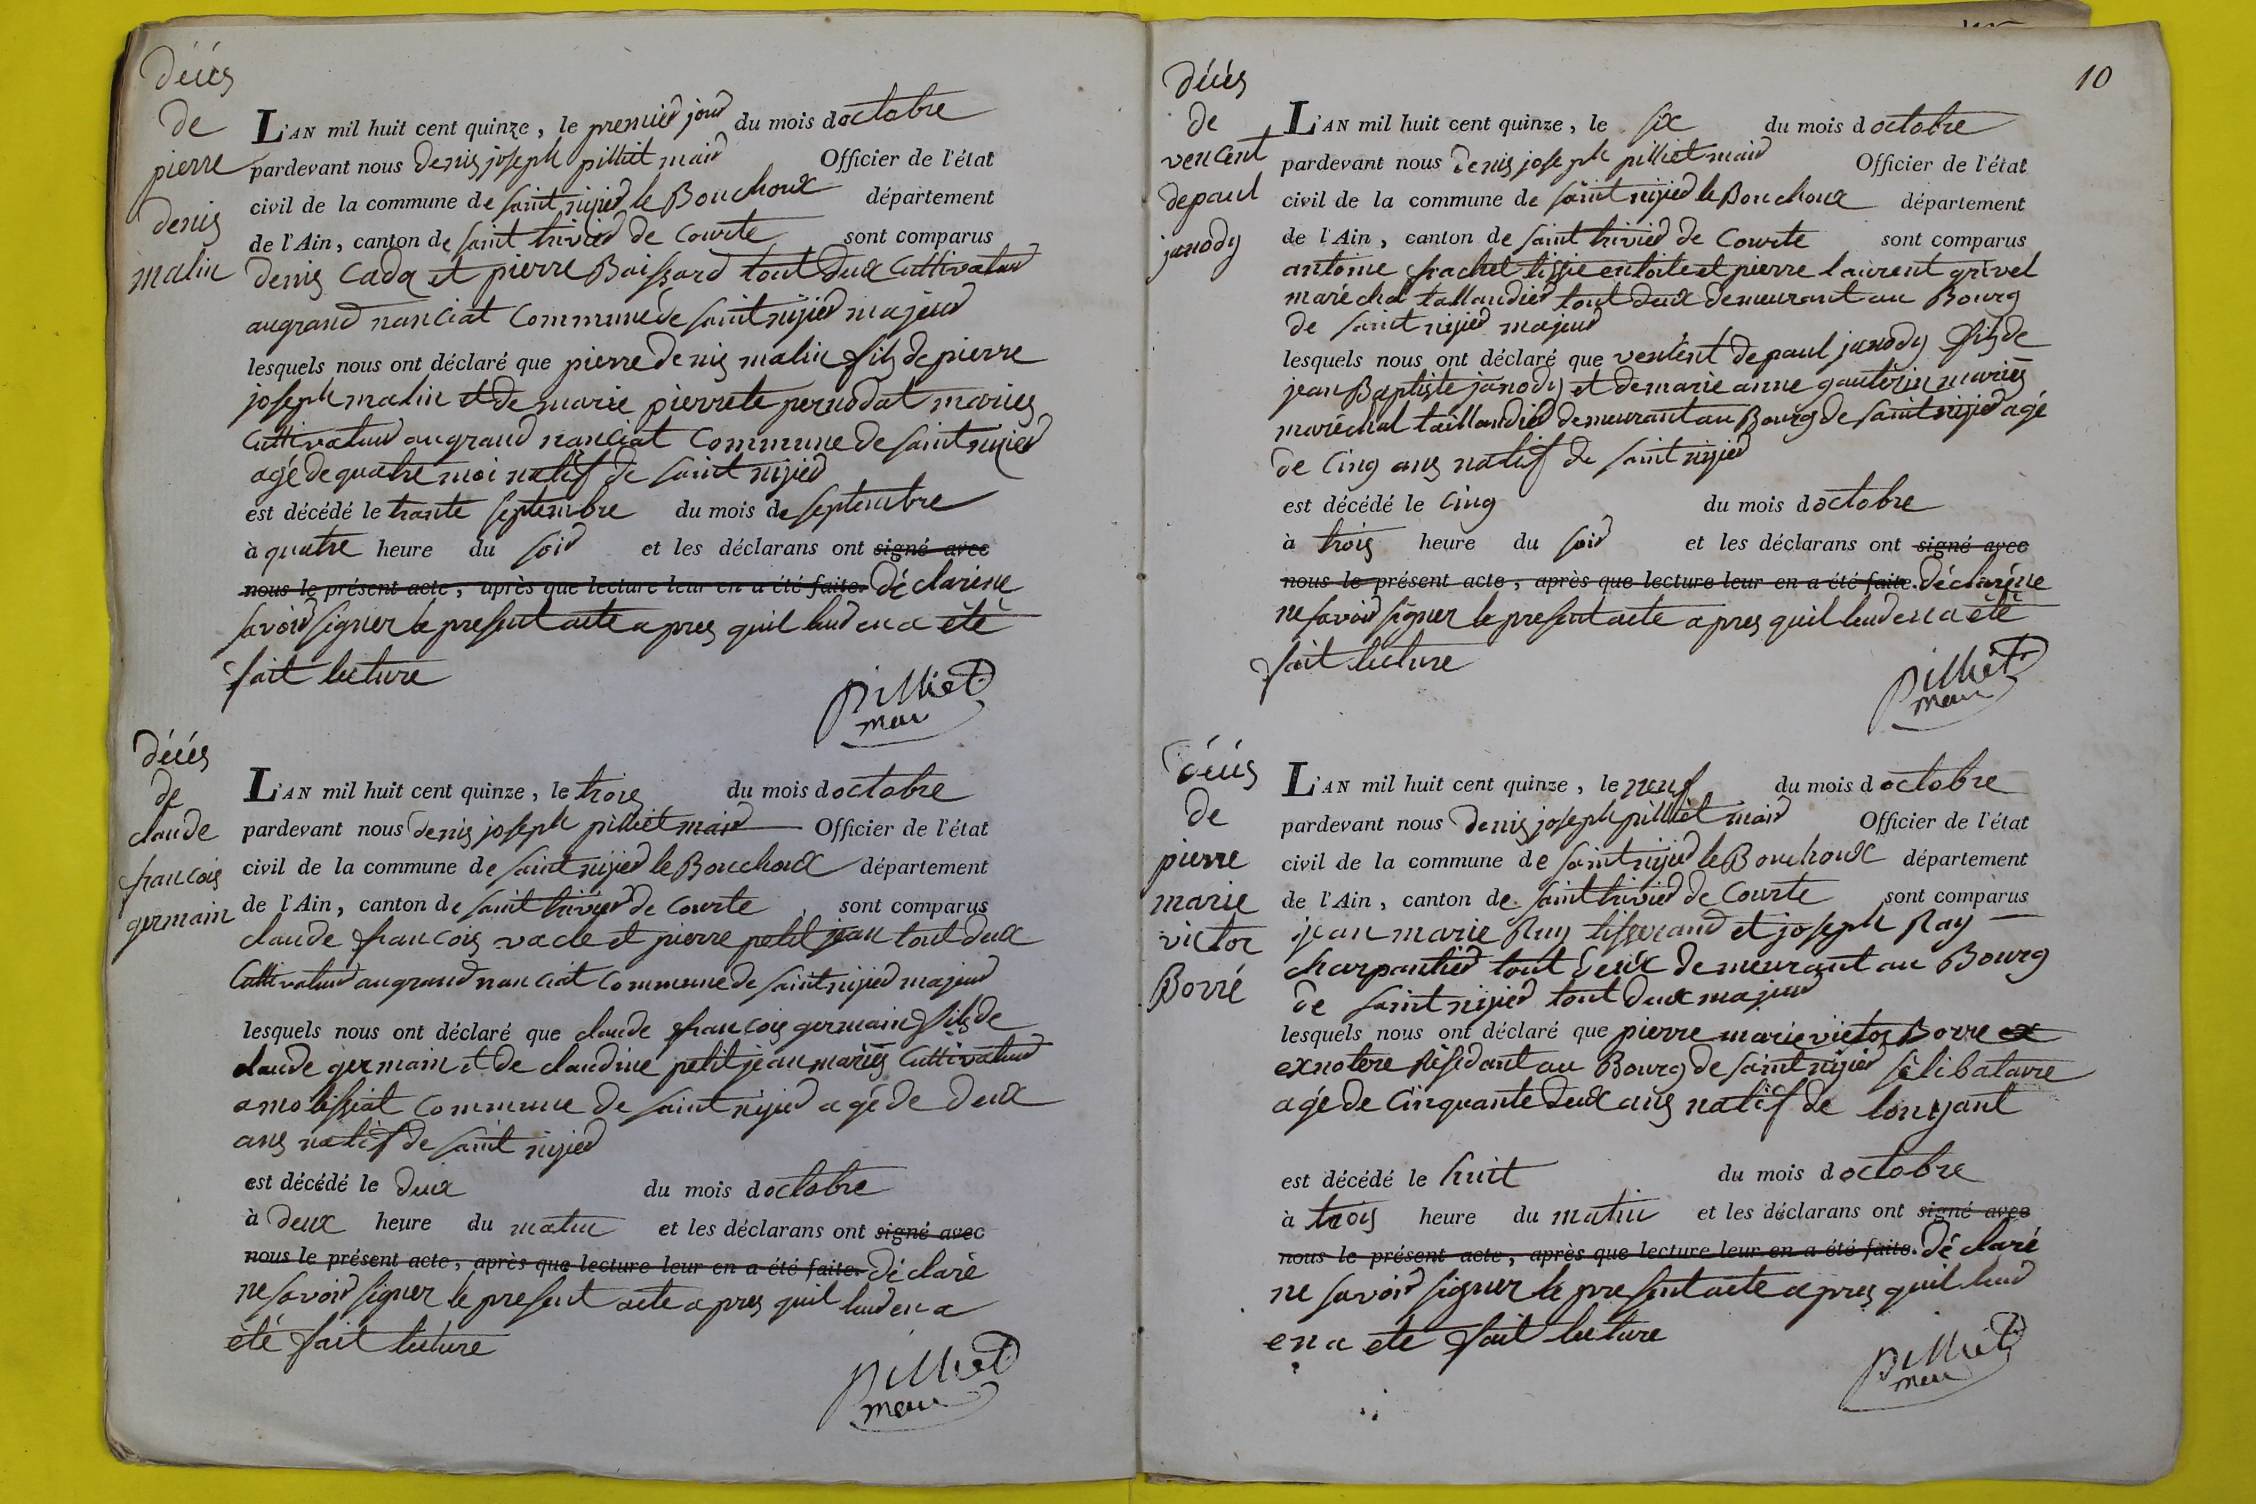 décès
de
pierre
denis
malin
L'AN mil huit cent quinze, le premier jour du mois doctobre
pardevant nous denis joseph pilliet maire Officier de l'état
civil de la commune de saint nijier le Bouchoux département
de l'Ain, canton de saint trivier de Courte sont comparus
denis Cada et pierre Baissard tout deux Cultivateur
au grand nanciat Commune de saint nijier majeur
lesquels nous ont déclaré que pierre denis malin fils de pierre
joseph malin et de marie pierrete pernodat mariés
Cultivateur au grand nanciat Commune de saint nijier
agé de quatre moi natif de saint nijier
est décédé le trante septembre du mois de septembre
à quatre heure du soir et les déclarans ont signé avec
nous le présent acte, après que lecture leur en a été faite. déclaré ne
savoir signer le present acte apres quil leur en a été
fait lecture
pilliet
maire
décès
de
claude
francois
germain
L'AN mil huit cent quinze, le trois du mois doctobre
pardevant nous denis joseph pilliet maire Officier de l'état
civil de la commune de saint nijier le Bouchoux département
de l'Ain, canton de saint trivier de Courte, sont comparus
claude francois vacle et pierre petit jean tout deux
Cultivateur au grand nanciat Commune de saint nijier majeur
lesquels nous ont déclaré que claude francois germain fils de
claude germain et de claudine petit jean mariés Cultivateur
a molissiat Commune de saint nijier agé de deux
ans natif de saint nijier
est décédé le deux du mois doctobre
à deux heure du matin et les déclarans ont signé avec
nous le présent acte, après que lecture leur en a été faite. déclaré
ne savoir signer le present acte apres quil leur en a
été fait lecture
pilliet
maire
10
décès
de
vencent
depaul
janody
L'AN mil huit cent quinze, le six du mois doctobre
pardevant nous denis joseph pilliet maire Officier de l'état
civil de la commune de saint nijier le Bouchoux département
de l'Ain, canton de saint trivier de Courte sont comparus
antoine frachet tissie en toile et pierre laurent grivel
maréchal tallandier tout deux demeurant au Bourg
de saint nijier majeur
lesquels nous ont déclaré que vencent depaul janody fils de
jean Baptiste janody et de marie anne gauterin mariés
maréchal taillandier demeurant au Bourg de saint nijier agé
de Cinq ans natif de saint nijier
est décédé le Cinq du mois doctobre
à trois heure du soir et les déclarans ont signé avec
nous le présent acte, après que lecture leur en a été faite. déclaré ne
ne savoir signer le present acte apres quil leur en a été
fait lecture
pilliet
maire
décès
de
pierre
marie
victor
Borré
L'AN mil huit cent quinze, le neuf du mois doctobre
pardevant nous denis joseph pilliet maire Officier de l'état
civil de la commune de saint nijier le Bouchoux département
de l'Ain, canton de saint trivier de Courte sont comparus
jean marie Ruy tisserand et joseph Ray
charpantier tout deux demeurant au Bourg
de saint nijier tout deux majeur
lesquels nous ont déclaré que pierre marie victor Borre ex
exnotere Résidant au Bourg de saint nijier sélibataire
agé de Cinquante deux ans natif de
est décédé le huit du mois doctobre
à trois heure du matin et les déclarans ont signé avec
nous le présent acte, après que lecture leur en a été faite. déclaré
ne savoir signer le present acte apres quil leur
en a ete fait lecture
pilliet
maire